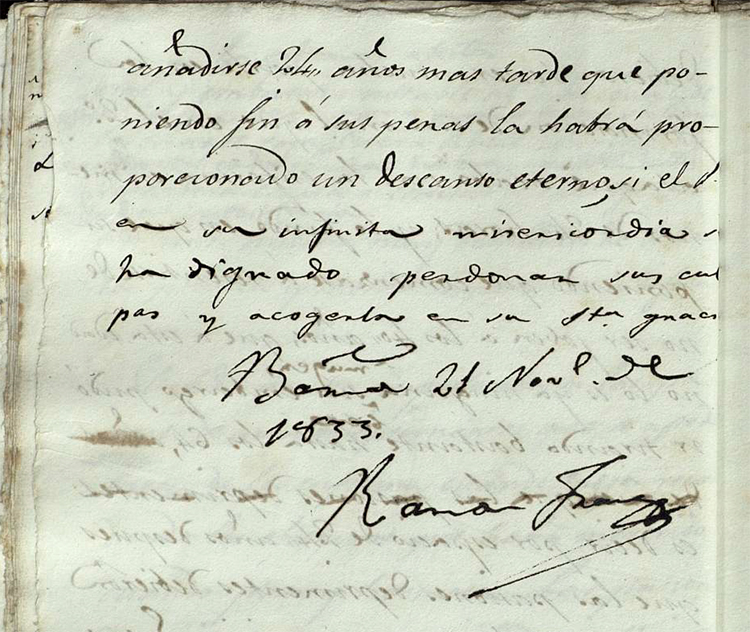 añadirse 24,, años mas tarde que po-
niendo fin á sus penas la habrá pro-
porcionado un descanso eterno, si el
en su infinita misericordia
ha dignado perdonar sus cul
pas y acogerla en su Sta. graci
Barna 21 Novl. de
1833.
Ramon